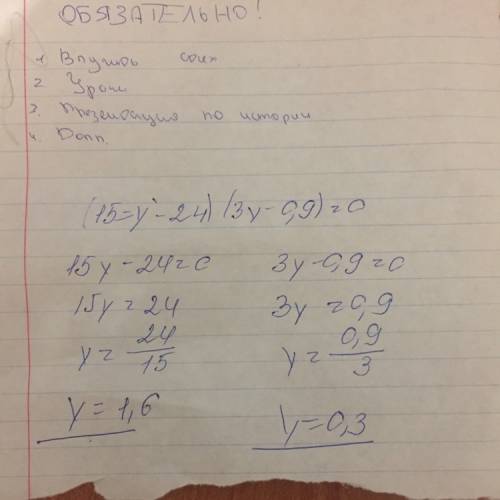 ОБЯЗАТЕЛЬНО!
1
2 Уроки
3. Презентация по истории
4. Доп.
(15=y-24)(3y-0,9)=0
15y-24=0 3y-0,9=0
15y=24 3y=0,9
y=24/15 y=0,9/3
y=1,6 y=0,3